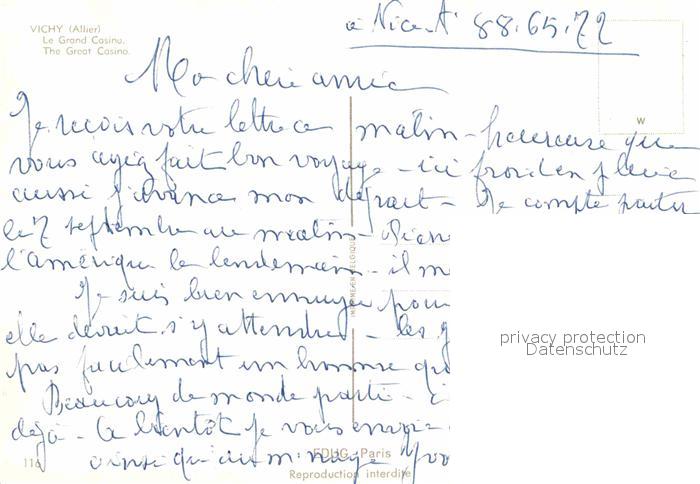 VICHY (Allier)
Le Grand Casino.
The Great Casino.
à Nice 88.65.72
Ma chère amie
Je reçois votre lettre ce matin - heureuse que
vous ayez fait bon voyage - ici froid en pluie
aussi j'avance mon départ - Je compte partir
le 7 septembre au matin -
l'amérique le lendemain - il m
Je suis bien ennuyée pour
elle devait s'y attendre - les
pas facilement un homme qu
Beaucoup de monde parti -
déjà - A bientôt je vous envoie
ainsi qu'au
IMPRIMÉ EN BELGIQUE
W
privacy protection
Datenschutz
116
EDUG - Paris
Reproduction interdite